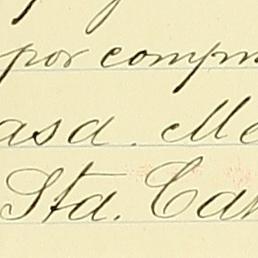 por compr
asa. Me
Sta. Can